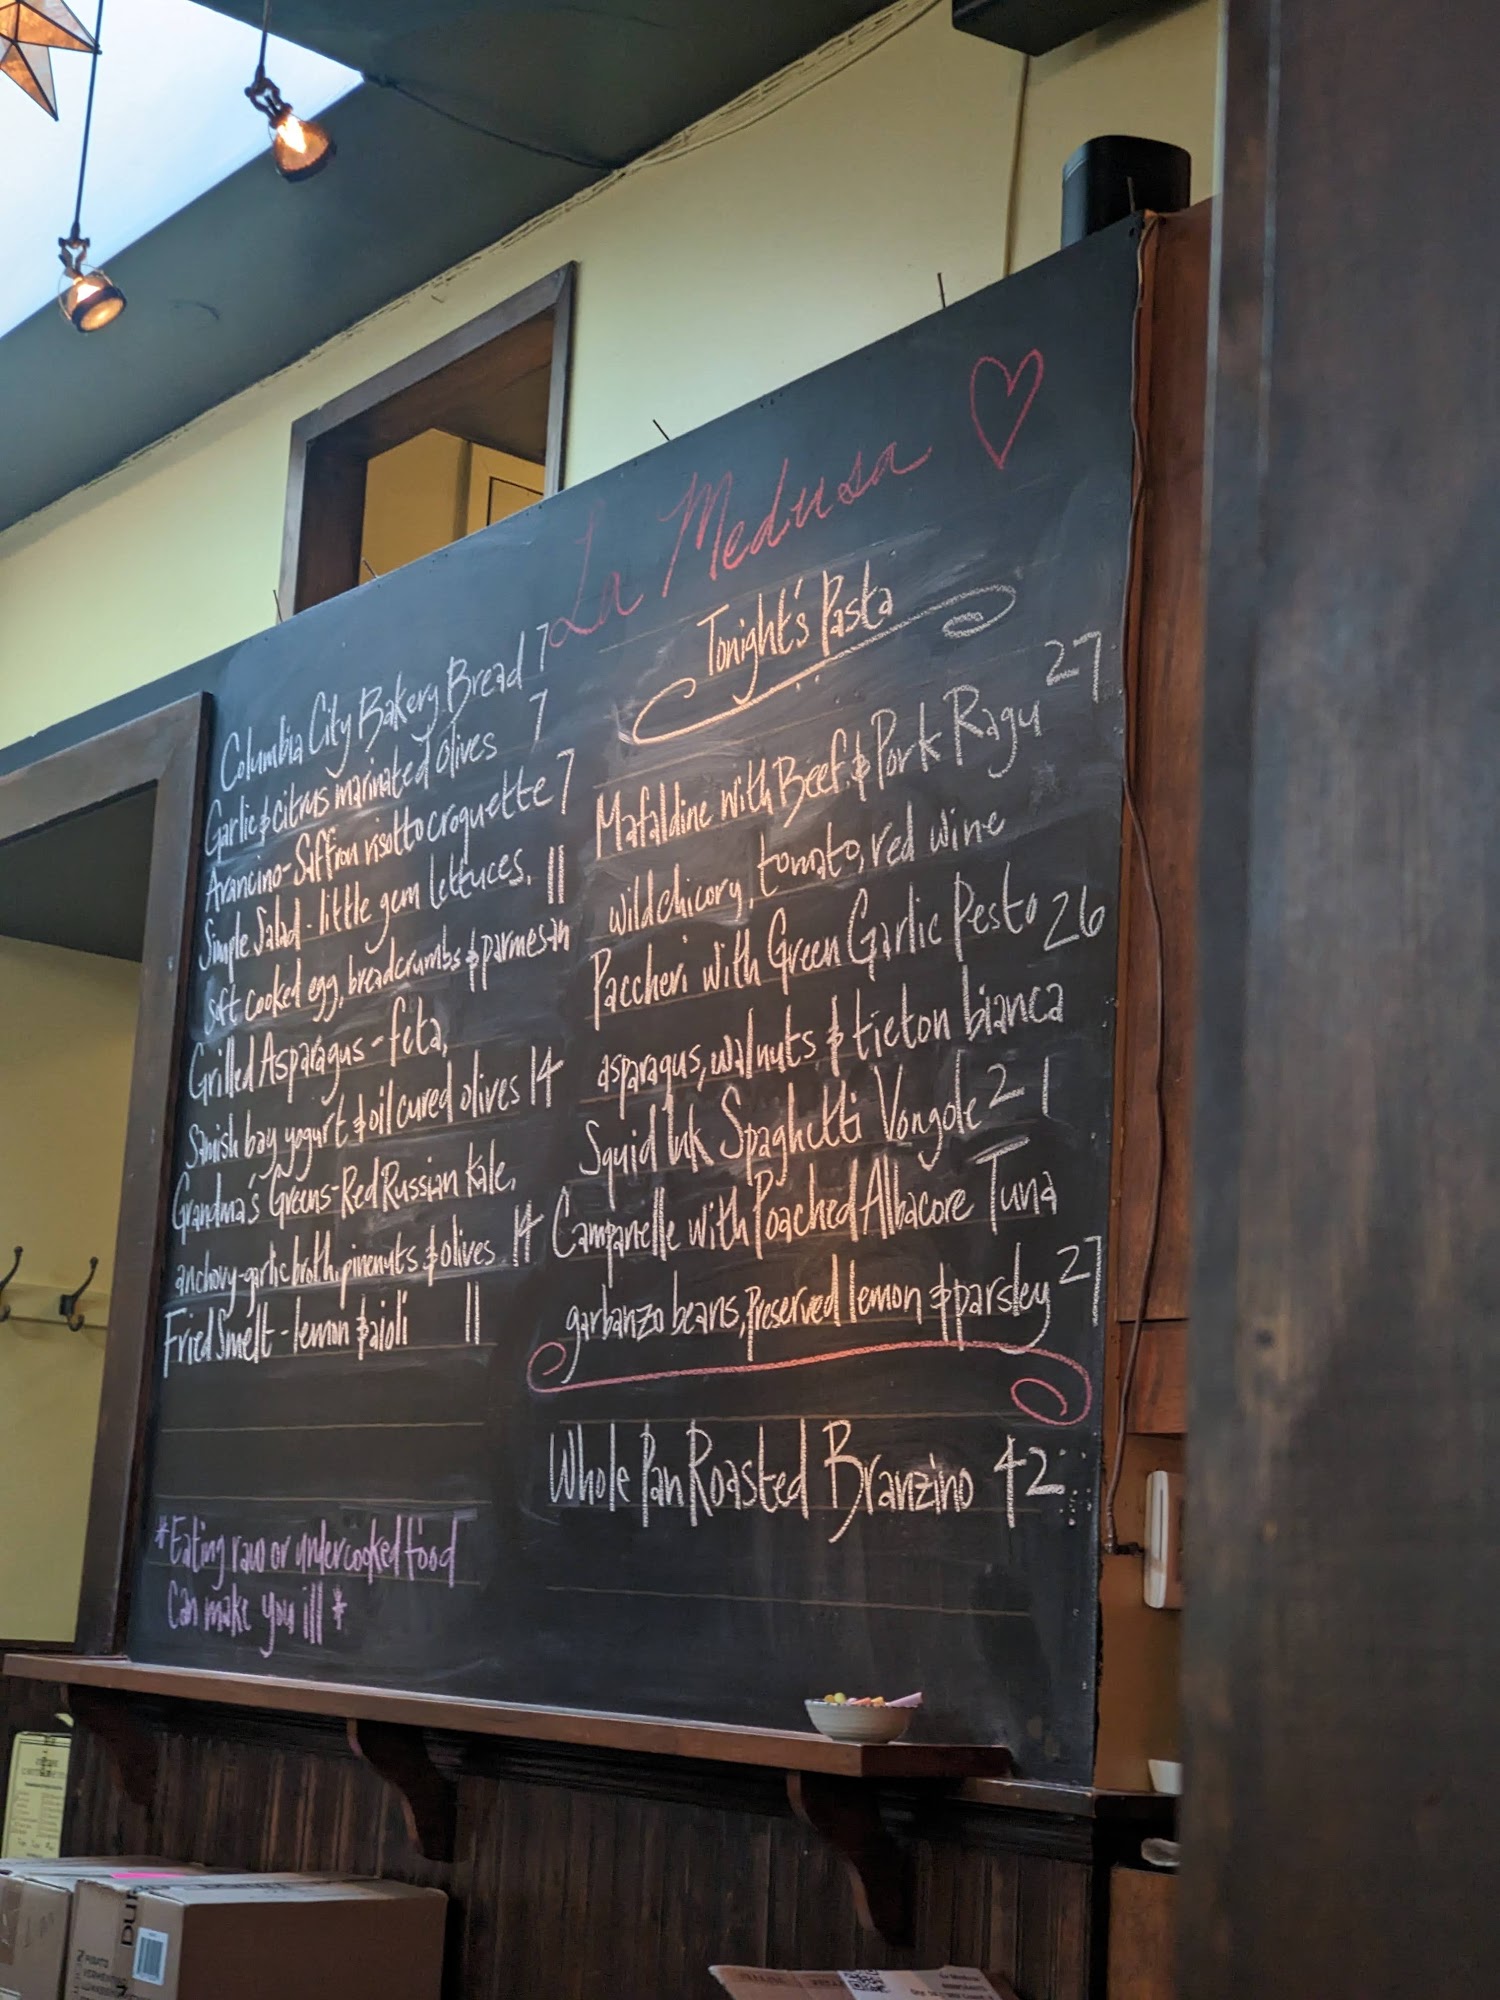 La Medusa
Columbia City Bakery Bread 7
Garlic & citrus marinated olives 7
Arancino - Saffron risotto croquette 7
Simple Salad - little gem lettuces, 11
soft cooked egg, breadcrumbs & parmesan
Grilled Asparagus - feta,
Samish bay yogurt & oil cured olives 14
Grandma's Greens - Red Russian Kale,
anchovy-garlic broth, pinenuts & olives 14
Fried Smelt - lemon & aioli 11
*Eating raw or undercooked food
Can make you ill*
Tonight's Pasta
Mafaldine with Beef & Pork Ragu 27
wild chicory, tomato, red wine
Paccheri with Green Garlic Pesto 26
asparagus, walnuts & tieton bianca
Squid Ink Spaghetti Vongole 21
Campanelle with Poached Albacore Tuna
garbanzo beans, preserved lemon & parsley 27
Whole Pan Roasted Branzino 42